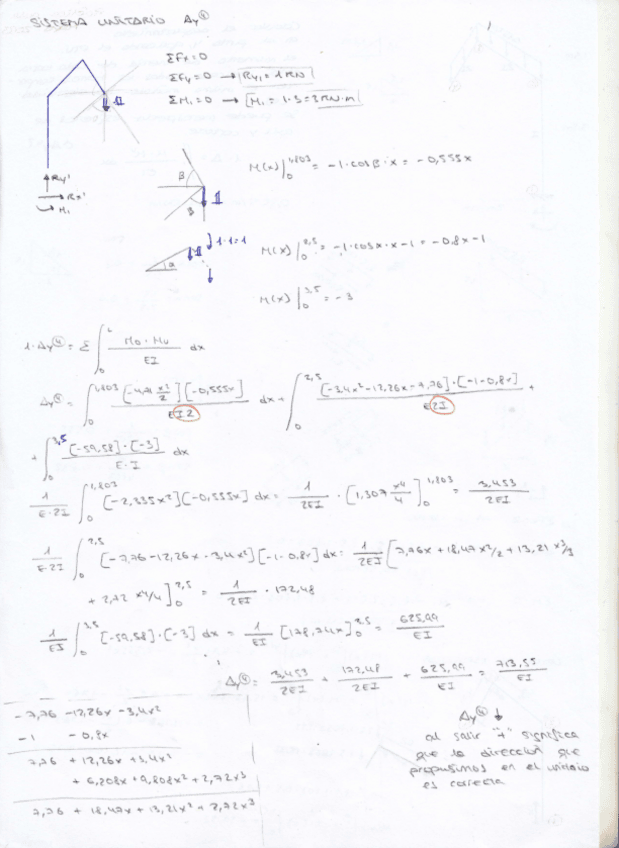 SISTEMA UNITARIO Δy④
ΣFx=0
ΣFy=0 → Ry1=1MN
ΣM1=0 → M1= 1·3=3MN·m
1
Ry1
Rx1
M1
β
β
M(x)|₀^1,803 = -1·cosβ·x = -0,555x
1·1=1
α
M(x)|₀^2,5 = -1·cosα·x-1 = -0,8x-1
M(x)|₀^3,5 = -3
1·Δy④ = Σ ∫₀^L M0·Mu / EI dx
Δy④ = ∫₀^1,803 [-4,71 x²/2][-0,555x] / EI2 dx + ∫₀^2,5 [-3,4x²-12,26x-7,76]·[-1-0,8x] / E2I +
+ ∫₀^3,5 [-59,58]·[-3] / E·I dx
1/E·2I ∫₀^1,803 [-2,335x²][-0,555x] dx = 1/2EI · [1,307 x⁴/4]₀^1,803 = 3,453/2EI
1/E·2I ∫₀^2,5 [-7,76-12,26x-3,4x²][-1-0,8x] dx = 1/2EI [7,76x + 18,47x²/2 + 13,21x³/3
+ 2,72 x⁴/4]₀^2,5 = 1/2EI · 172,48
1/EI ∫₀^3,5 [-59,58]·[-3] dx = 1/EI [178,74x]₀^3,5 = 625,99/EI
Δy④ = 3,453/2EI + 172,48/2EI + 625,99/EI = 713,55/EI
-7,76 -12,26x -3,4x²
-1 -0,8x
7,76 + 12,26x + 3,4x²
+ 6,208x + 9,808x² + 2,72x³
7,76 + 18,47x + 13,21x² + 2,72x³
Δy④ ↓
al salir "+" significa
que la dirección que
propusimos en el unitario
es correcta